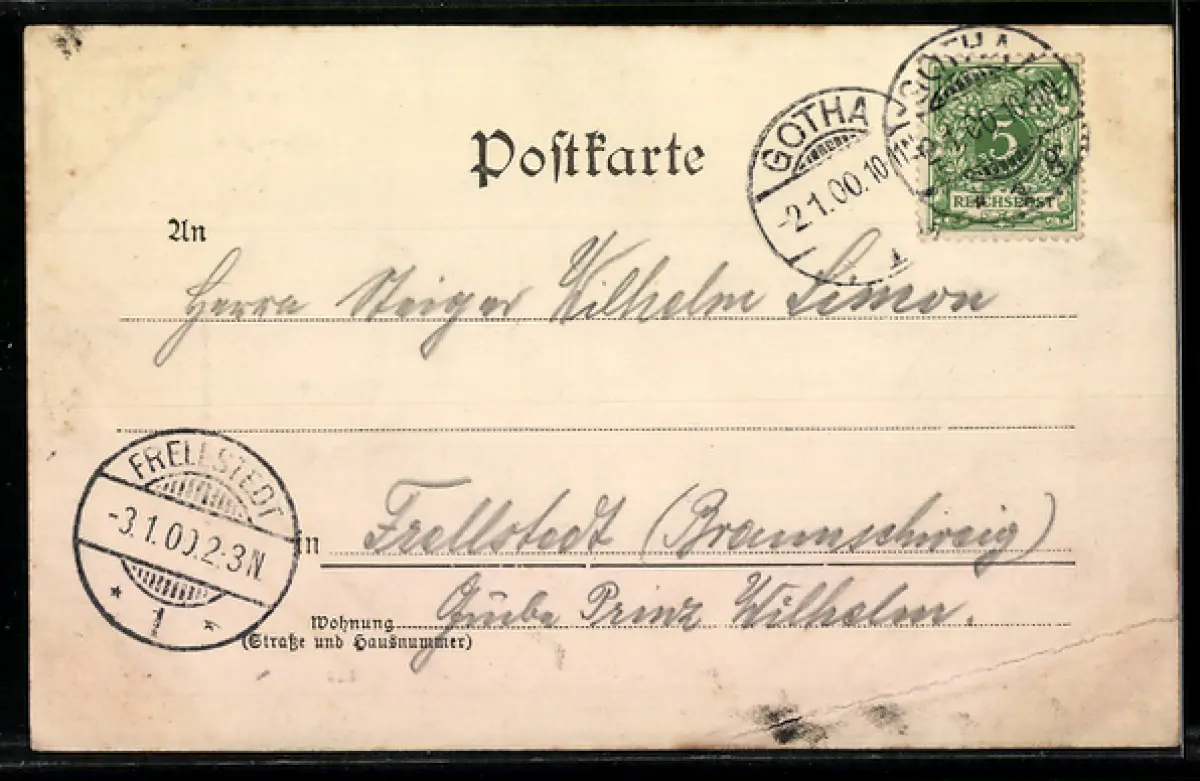 Postkarte
GOTHA
-2.1.00.10-11N.
1
GOTHA
-2.1.00.10-11N.
5
REICHSPOST
An
Herrn Steiger Wilhelm Simon
FRELLSTEDT
-3.1.00.2-3N.
* 1 *
in Frellstedt (Braunschweig)
Wohnung Grube Prinz Wilhelm.
(Straße und Hausnummer)